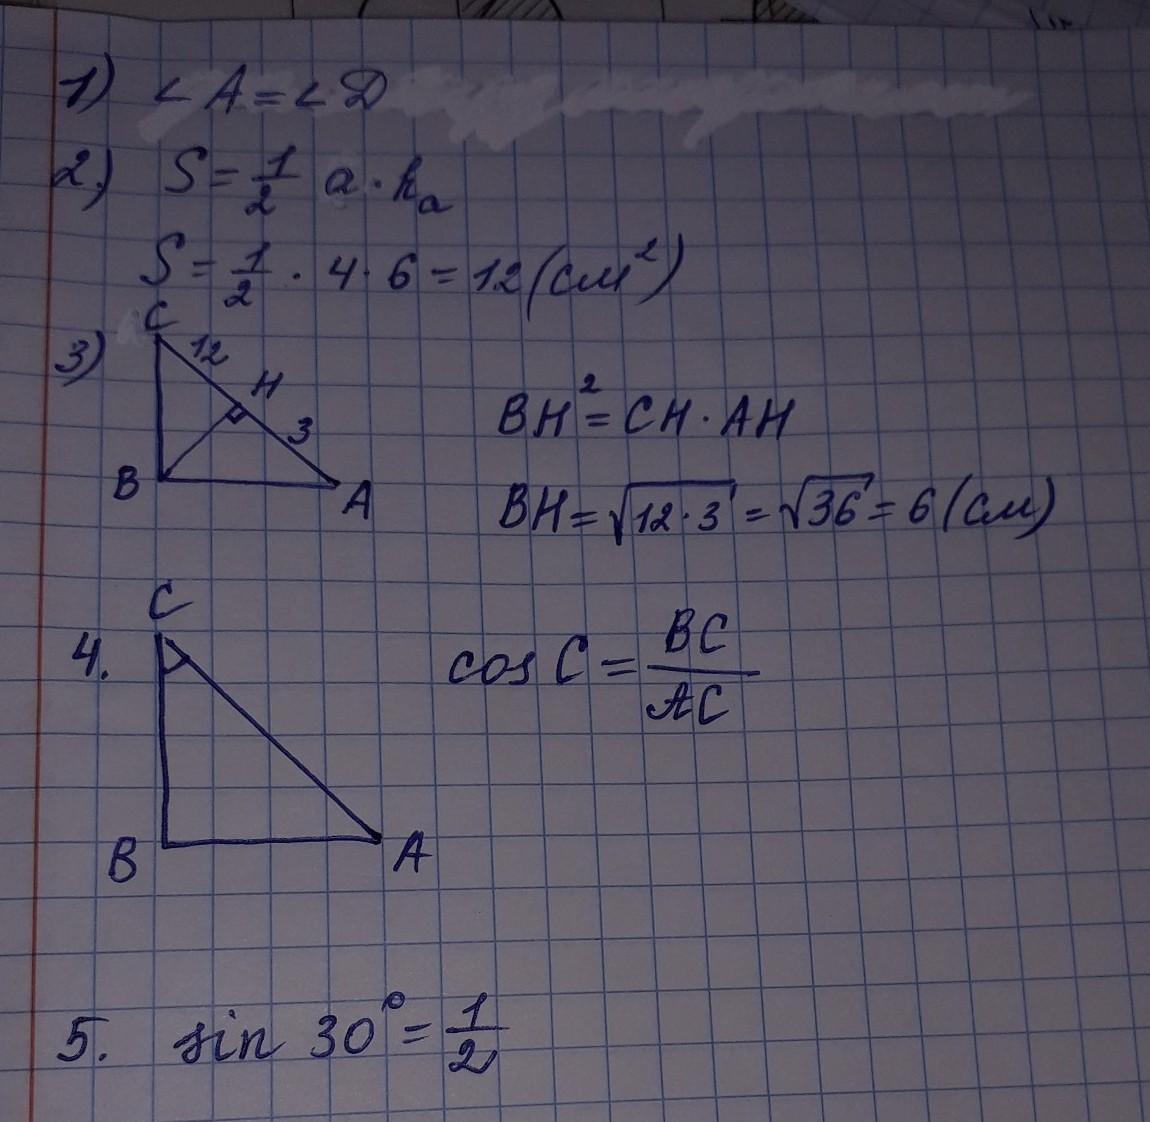 1) ∠A=∠D
2) S=1/2 a·hₐ
S=1/2·4·6=12(см²)
3)
C
12
H
3
B
A
BH²=CH·AH
BH=√12·3=√36=6(см)
4.
C
B
A
cos C=BC/AC
5. sin 30°=1/2